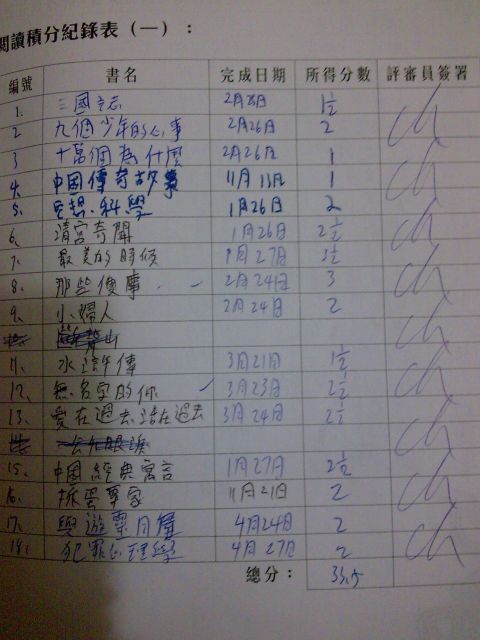 閱讀積分紀錄表（一）：
編號 書名 完成日期 所得分數 評審員簽署
1. 三國志 2月28日 1½
2 九個少年的心事 2月26日 2
3 十萬個為什麼 2月26日 1
4. 中國傳奇故事 11月13日 1
5. 思想.科學 1月26日 2
6. 清宮奇聞 1月26日 2½
7. 最美的時候 1月27日
8. 那些傻事 2月24日 3
9. 小婦人 2月24日 2
11. 水滸傳 3月21日 1½
12. 無名字的你 3月23日 2½
13. 愛在過去活在過去 3月24日 2½
15. 中國經典寓言 1月27日 2½
16. 拆蛋專家 11月21日 2
17. 4月24日 2
18. 犯罪心理學 4月27日 2
總分： 33.5